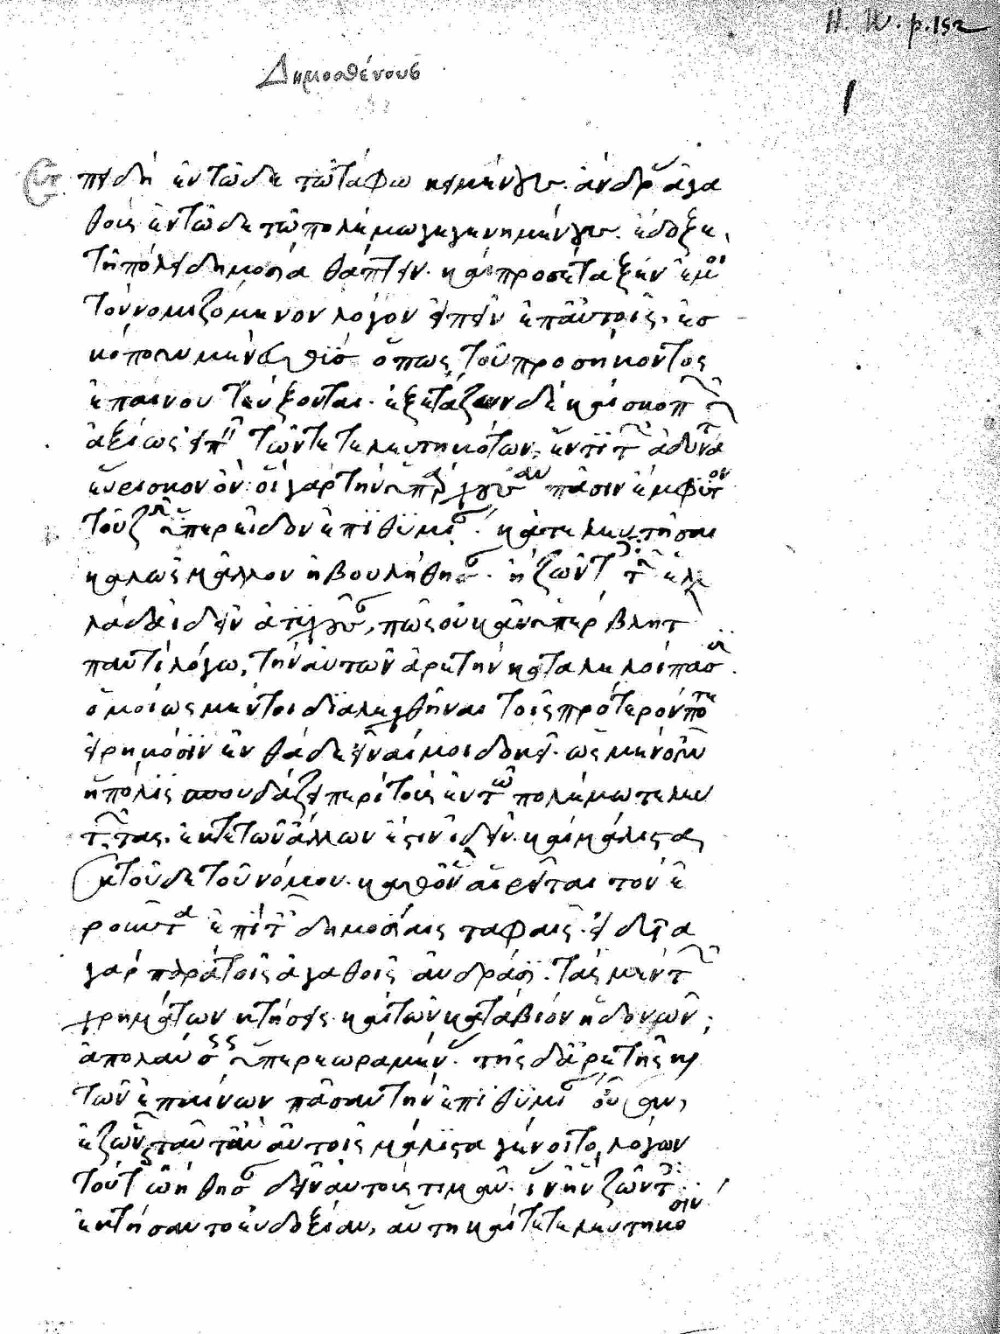 Η. W. p. 152
1
Δημοσθένους
Ἐπειδὴ ἐν τῶδε τῶ τάφω κειμένους ἄνδρας ἀγα
θοὺς ἐν τῶδε τῶ πολέμω γεγενημένους. ἔδοξε
τῆ πόλει δημοσία θάπτειν. καὶ προσέταξεν ἐμοὶ
τὸν νομιζόμενον λόγον εἰπεῖν ἐπ αὐτοῖς. ἐσ
κόπουν μὲν εὐθὺς ὅπως τοῦ προσήκοντος
ἐπαίνου τεύξονται. ἐξετάζων δὲ καὶ σκοπῶν
ἀξίως εἰπεῖν τῶν τετελευτηκότων, ἕν τι τῶν ἀδυνάτων
εὕρισκον ὄν. οἱ γὰρ τὴν ὑπάρχουσαν πᾶσιν ἔμφυτον
τοῦ ζῆν ὑπερεῖδον ἐπιθυμίαν. καὶ τελευτῆσαι
καλῶς μᾶλλον ἠβουλήθησαν. ἢ ζῶντες τὴν ἑλ
λάδα ἰδεῖν ἀτυχοῦσαν, πῶς οὐκ ἀνυπέρβλητον
παντὶ λόγω, τὴν αὑτῶν ἀρετὴν καταλελοίπασιν.
ὁμοίως μέντοι διαλεχθῆναι τοῖς πρότερόν ποτε
εἰρηκόσιν ἐνθάδε εἶναί μοι δοκεῖ. ὡς μὲν οὖν
ἡ πόλις σπουδάζει περὶ τοὺς ἐν τῶ πολέμω τελευ
τῶντας. ἔκ τε τῶν ἄλλων ἔστιν ἰδεῖν. καὶ μάλιστα
ἐκ τοῦδε τοῦ νόμου. καθ ὃν αἱρεῖται τὸν ἐ
ροῦντα ἐπὶ ταῖς δημοσίαις ταφαῖς. εἰδυῖα
γὰρ παρὰ τοῖς ἀγαθοῖς ἀνδράσι. τὰς μὲν τῶν
χρημάτων κτήσεις καὶ τῶν κατὰ βίον ἡδονῶν,
ἀπολαύσεις ὑπερεωραμένας. τῆς δὲ ἀρετῆς καὶ
τῶν ἐπαίνων πᾶσαν τὴν ἐπιθυμίαν οὖσαν,
ἐξ ὧν ταῦτ ἂν αὐτοῖς μάλιστα γένοιτο λόγων
τούτοις ὠήθησαν δεῖν αὐτοὺς τιμᾶν. ἵν ἣν ζῶντες
ἐκτήσαντο εὐδοξίαν, αὕτη καὶ τετελευτηκόσιν